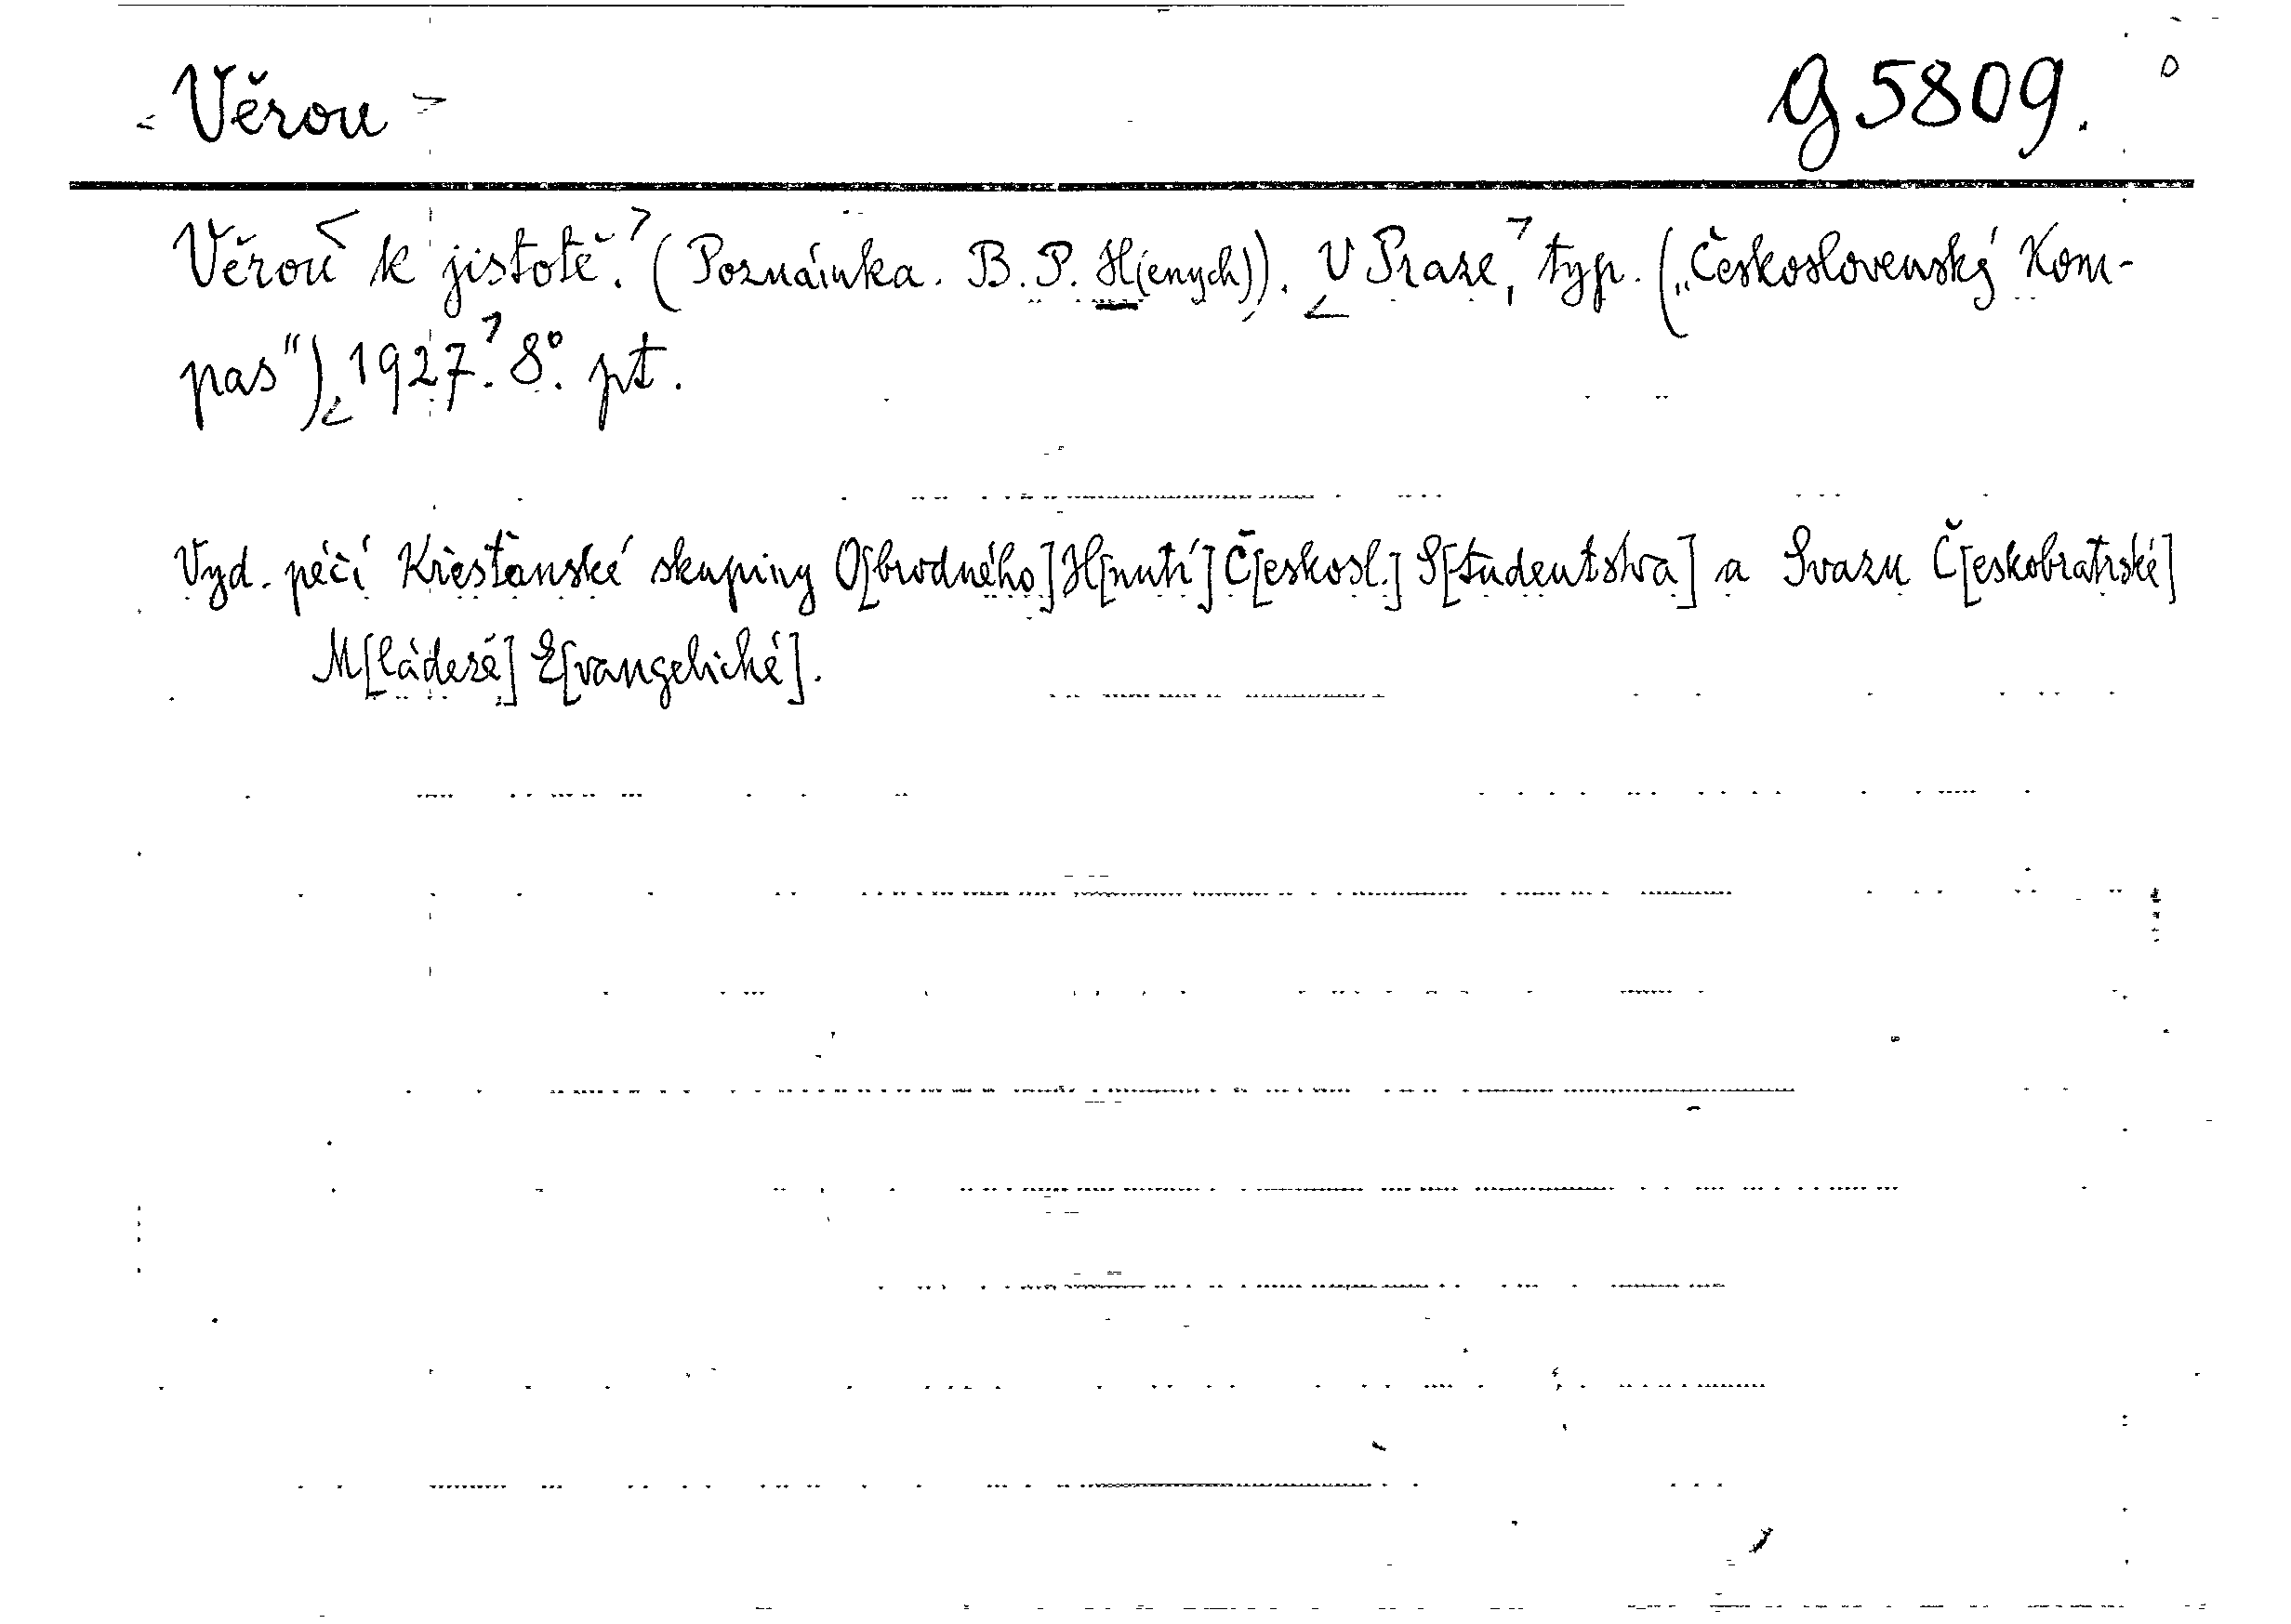 Věrou g 5809.
Věrou k jistotě. (Poznámka. B. P. H(enych)). V Praze, typ. („Československý Kom-
pas"), 1927. 8°. pt.
Vyd. péčí Křesťanské skupiny O[brodného] H[nutí] Č[eskosl.] S[tudentstva] a Svazu Č[eskobratrské]
M[ládeže] E[vangelické].